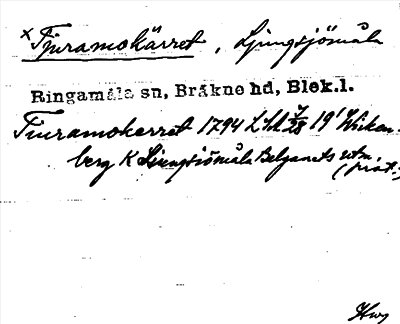 ×Tjuramokärret, Ljungsjömåla
Ringamåla sn, Bräkne hd, Blek.l.
Tiuramokerret 1794 LSA 7/28 19' Wieken-
berg K Liungsiömåla Belganets utm.
(prot.)
Hwg